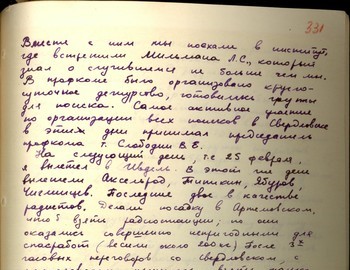 331
Вместе с ним мы поехали в институт,
где встретили Мильмана Л.С., который
знал о случившемся не больше чем мы.
В профкоме было организовано кругло-
суточное дежурство, готовились группы
для поиска. Самое активное участие
по организации всех поисков в Свердловске
в этих дни принимал председатель
профкома т. Слободин В.Е.
На следующий день, т.е 25 февраля
я вылетел в Ивдель. В этот же день
вылетели Аксельрод, Типикин, Ябуров,
Чеглинцев. Последние двое в качестве
радистов. Делали посадку в Артемовском,
что б взять радиостанции, но они
оказались совершенно непригодными для
спасработ (весили около 200 кг) После 3х
часовых переговоров со Свердловском, с